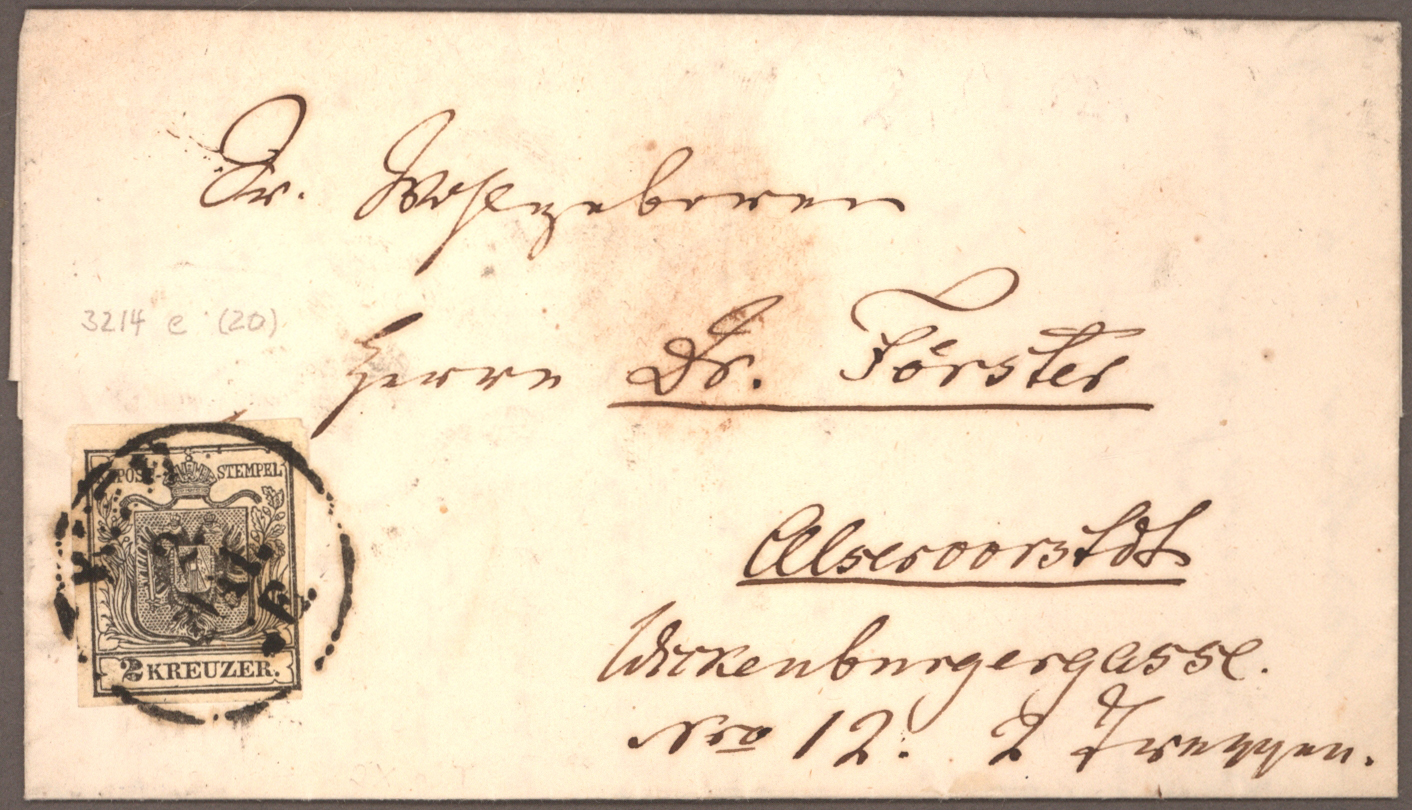 Sr. Wohlgeboren
3214 e (20)
Herrn Dr. Förster
POST-STEMPEL
2 KREUZER.
Alservorstdt
Wickenburgergasse.
Nro 12. 2 Treppen.